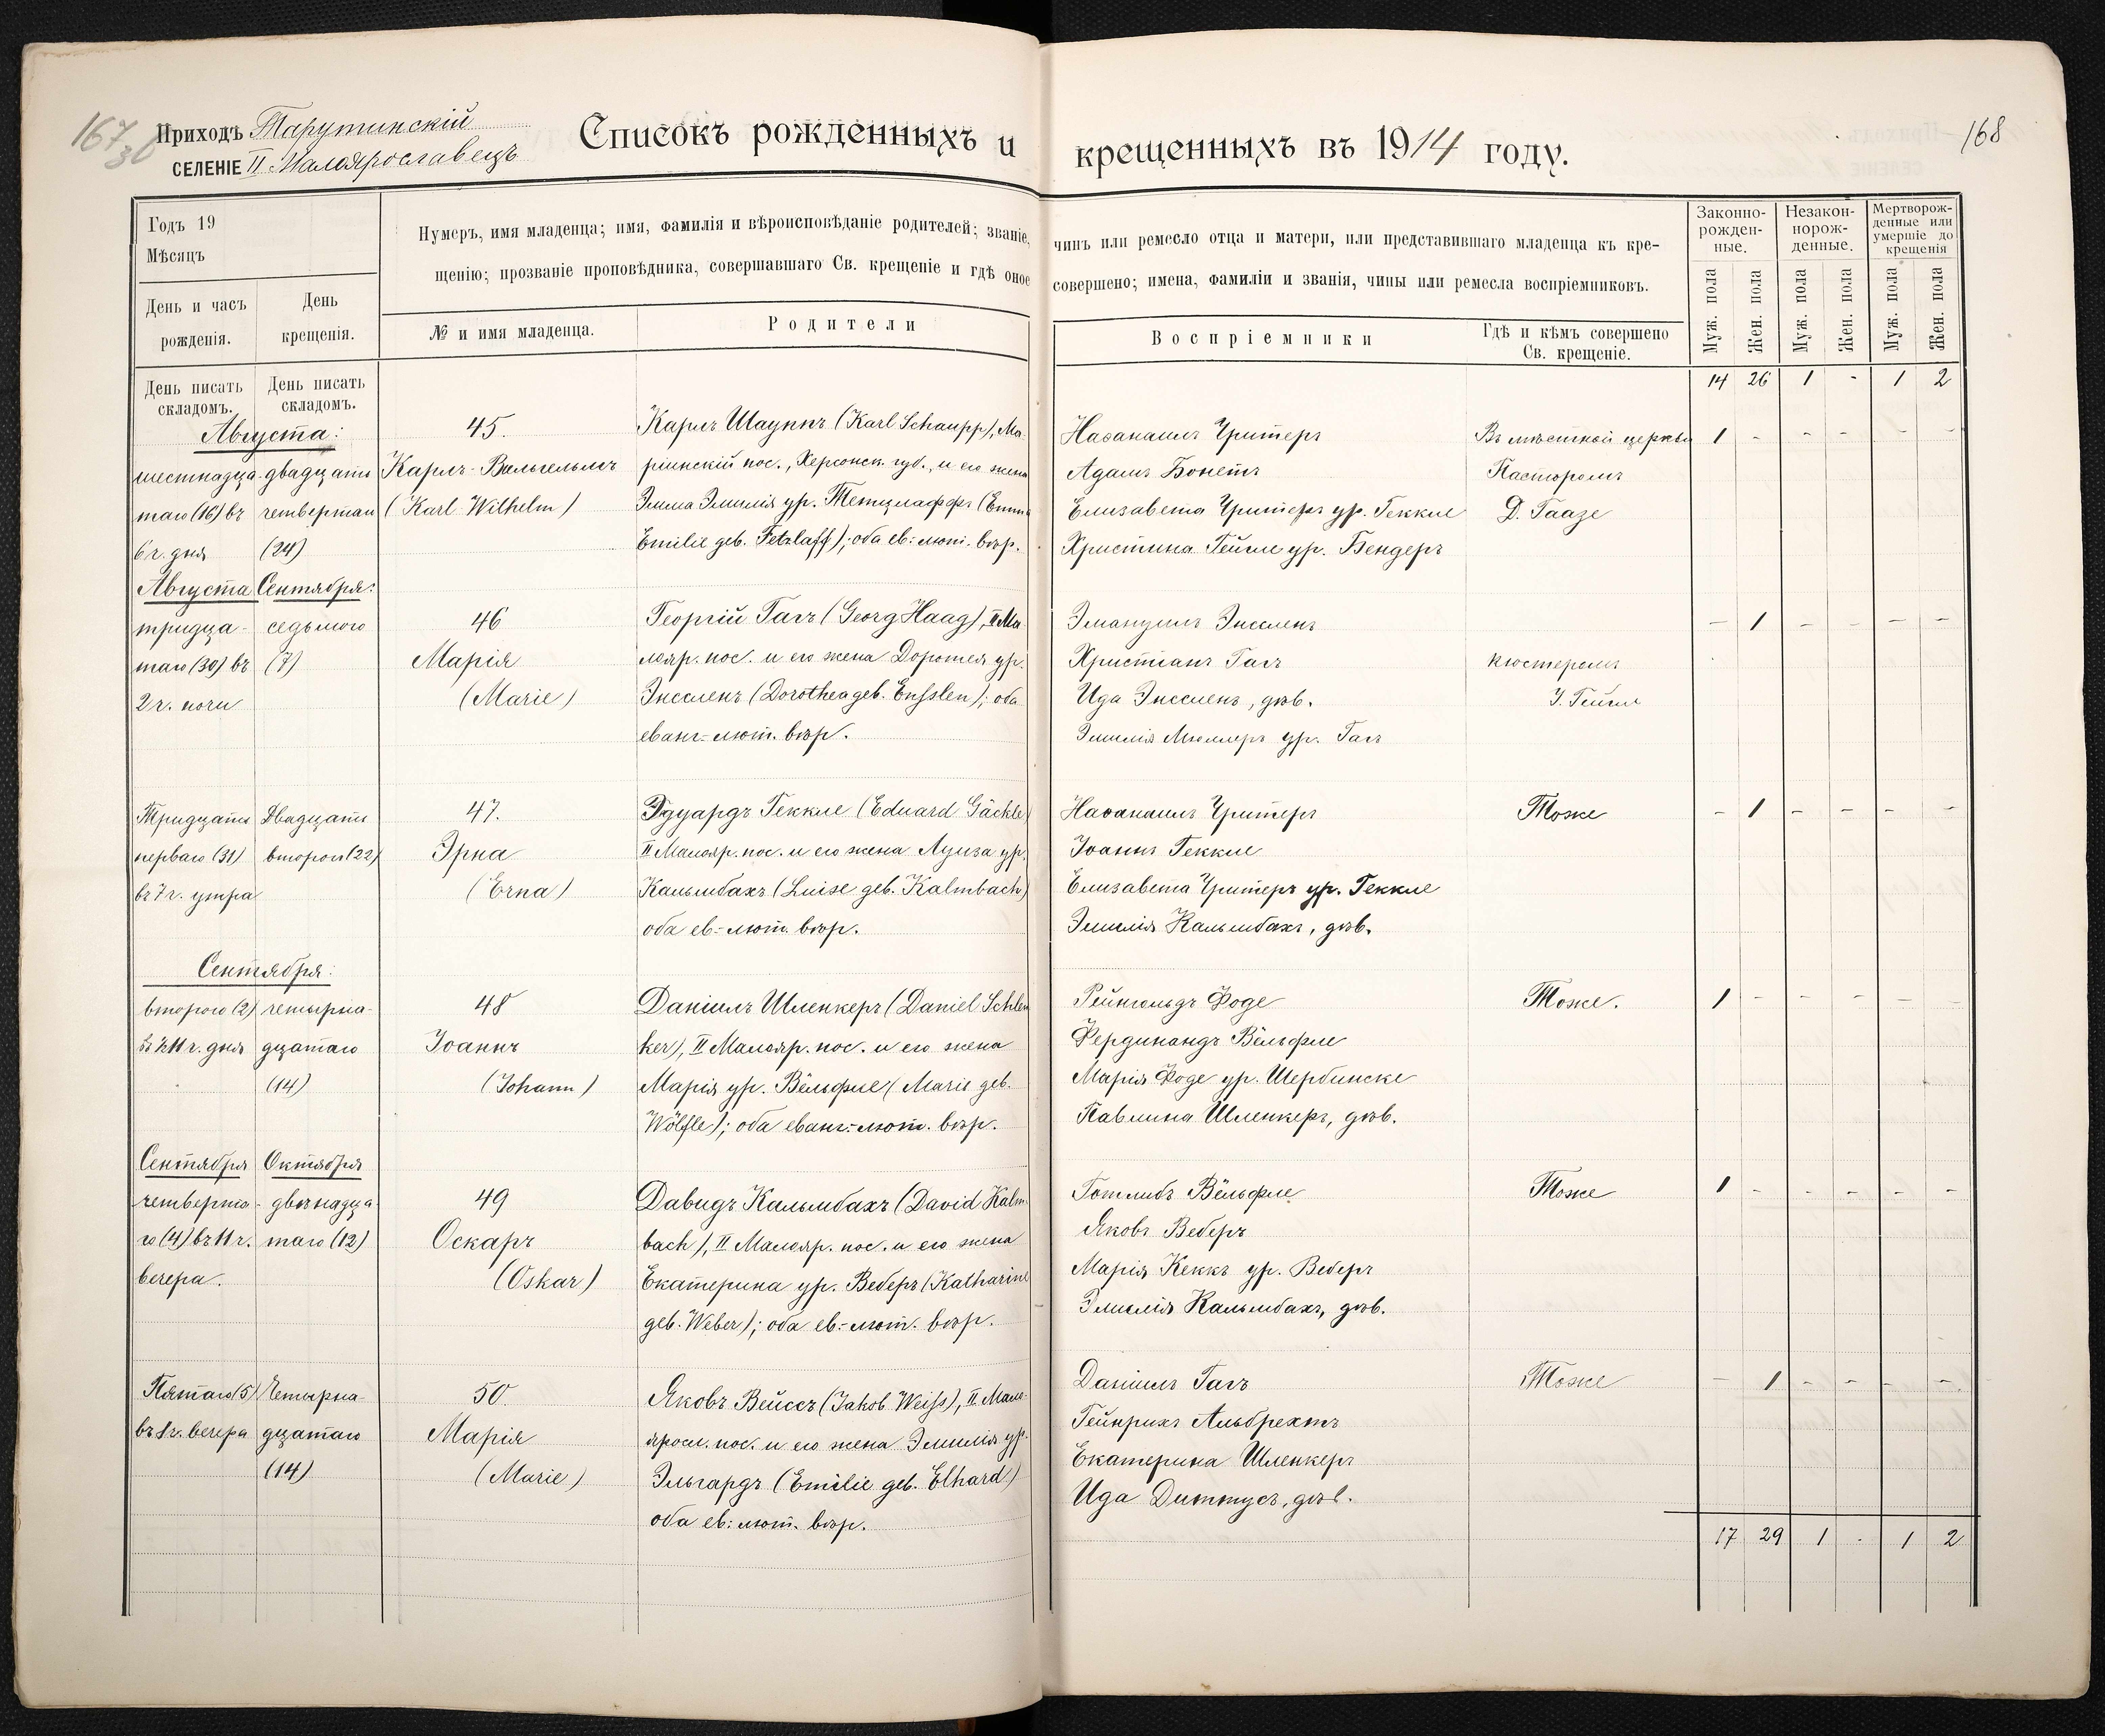 167
30
Приходъ Тарутинскій
СЕЛЕНІЕ II Малоярославецъ
Списокъ рожденныхъ и крещенныхъ въ 1914 году.
168
Годъ 19
Мѣсяцъ
День и часъ рожденія.
День крещенія.
Нумеръ, имя младенца; имя, фамилія и вѣроисповѣданіе родителей; званіе, чинъ или ремесло отца и матери, или представившаго младенца къ кре-
щенію; прозваніе проповѣдника, совершавшаго Св. крещеніе и гдѣ оное совершено; имена, фамиліи и званія, чины или ремесла воспріемниковъ.
№ и имя младенца.
Родители
Воспріемники
Гдѣ и кѣмъ совершено
Св. крещеніе.
Законно-
рожден-
ные.
Незакон-
норож-
денные.
Мертворож-
денные или
умершіе до
крещенія
Муж. пола
Жен. пола
Муж. пола
Жен. пола
Муж. пола
Жен. пола
День писать
складомъ.
День писать
складомъ.
14 26 1 - 1 2
Августа:
шестнадца-
таго (16) въ
6 ч. дня
двадцать
четвертаго
(24)
45.
Карлъ-Вильгельмъ
(Karl Wilhelm)
Карлъ Шауппъ (Karl Schaupp), Ма-
ріинскій пос., Херсонск. губ., и его жена
Эмма Эмилія ур. Тетцлаффъ (Emma
Emilie geb. Tetzlaff); оба ев: лют. вѣр.
Наѳанаилъ Уритеръ
Адамъ Бонетъ
Елизавета Уритеръ ур. Геккле
Христина Гейгле ур. Бендеръ
Въ мѣстной церкви
Пасторомъ
Д. Гаазе
1 - - - - -
Августа
тридца-
таго (30) въ
2 ч. ночи
Сентября:
седьмого
(7)
46
Марія
(Marie)
Георгій Гагъ (Georg Haag), II Ма-
лояр. пос. и его жена Доротея ур.
Энсленъ (Dorothea geb. Ensslen); оба
еванг-лют. вѣр.
Эмануилъ Энсленъ
Христіанъ Гагъ
Ида Энсленъ, дѣв.
Эмилія Мюллеръ ур. Гагъ
кюстеромъ
І. Гейгле
- 1 - - - -
Тридцать
перваго (31)
въ 7 ч. утра
Двадцать
второго (22)
47.
Эрна
(Erna)
Эдуардъ Геккле (Eduard Gäckle)
II Малояр. пос. и его жена Луиза ур.
Кальмбахъ (Luise geb. Kalmbach)
оба ев-лют. вѣр.
Наѳанаилъ Уритеръ
Іоаннъ Геккле
Елизавета Уритеръ ур. Геккле
Эмилія Кальмбахъ, дѣв.
Тоже
- 1 - - - -
Сентября:
второго (2)
въ ½11 ч. дня
четырна-
дцатаго
(14)
48
Іоаннъ
(Johann)
Даніилъ Шленкеръ (Daniel Schlen
ker), II Малояр. пос. и его жена
Марія ур. Вёльфле (Marie geb.
Wölfle); оба еванг-лют. вѣр.
Рейнгольдъ Фоде
Фердинандъ Вёльфле
Марія Фоде ур. Щербинске
Павлина Шленкеръ, дѣв.
Тоже.
1 - - - - -
Сентября
четверта-
го (4) въ 11 ч.
вечера.
Октября
двѣнадца
таго (12)
49
Оскаръ
(Oskar)
Давидъ Кальмбахъ (David Kalm-
bach), II Малояр. пос. и его жена
Екатерина ур. Веберъ (Katharine
geb. Weber); оба ев-лют. вѣр.
Готлибъ Вёльфле
Яковъ Веберъ
Марія Кеккъ ур. Веберъ
Эмилія Кальмбахъ, дѣв.
Тоже
1 - - - - -
Пятаго (5)
въ 8 ч. вечера
Четырна-
дцатаго
(14)
50.
Марія
(Marie)
Яковъ Вейссъ (Jakob Weiss), II Мало-
яросл. пос. и его жена Эмилія ур.
Эльгардъ (Emilie geb. Elhard)
оба ев: лют. вѣр.
Даніилъ Гагъ
Гейнрихъ Альбрехтъ
Екатерина Шленкеръ
Ида Диттусъ, дѣв.
Тоже
- 1 - - - -
17 29 1 - 1 2